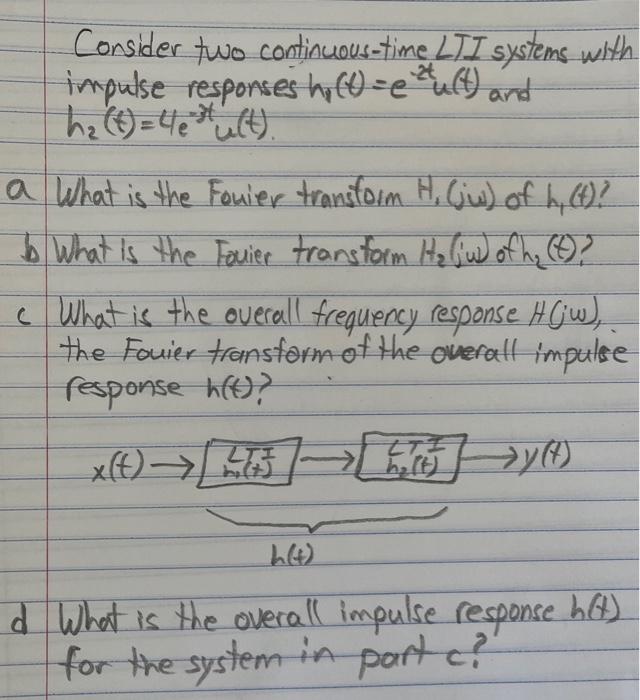 Consider two continuous-time LTI systems with
impulse responses h₁(t) = e⁻²ᵗu(t) and
h₂(t) = 4e⁻³ᵗu(t).
a What is the Fouier transform H₁(jw) of h₁(t)?
b What is the Fouier transform H₂(jw) of h₂(t)?
c What is the overall frequency response H(jw),
the Fouier transform of the overall impulse
response h(t)?
x(t) → LTI h₁(t) → LTI h₂(t) → y(t)
h(t)
d What is the overall impulse response h(t)
for the system in part c?